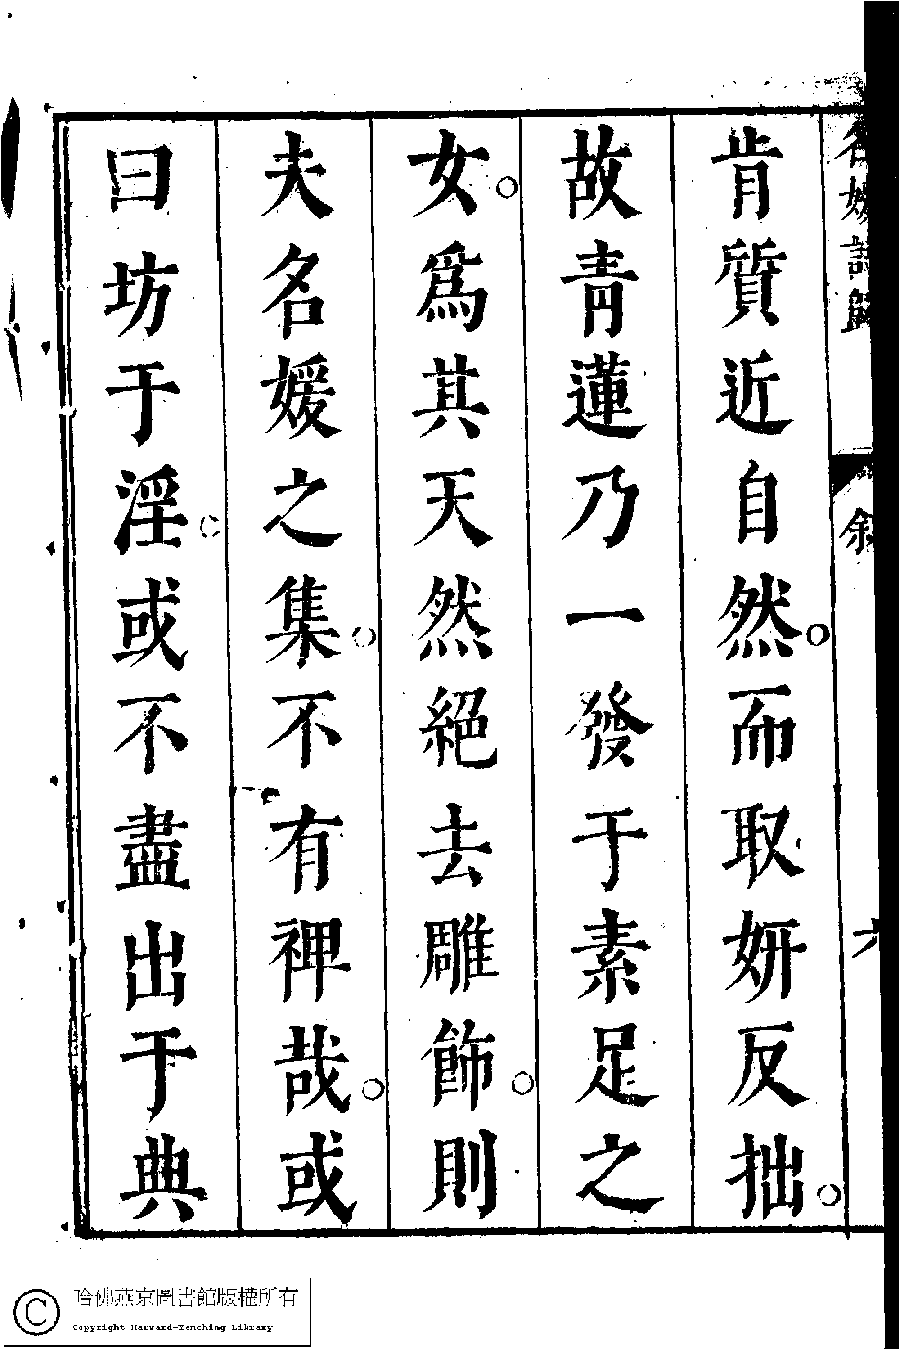 名媛詩歸
敘
六
肯質近自然。而取妍反拙。
故青蓮乃一發于素足之
女。爲其天然絕去雕飾。則
夫名媛之集。不有裨哉。或
曰坊于淫。或不盡出于典
哈佛燕京圖書館版權所有
Copyright Harvard-Yenching Library